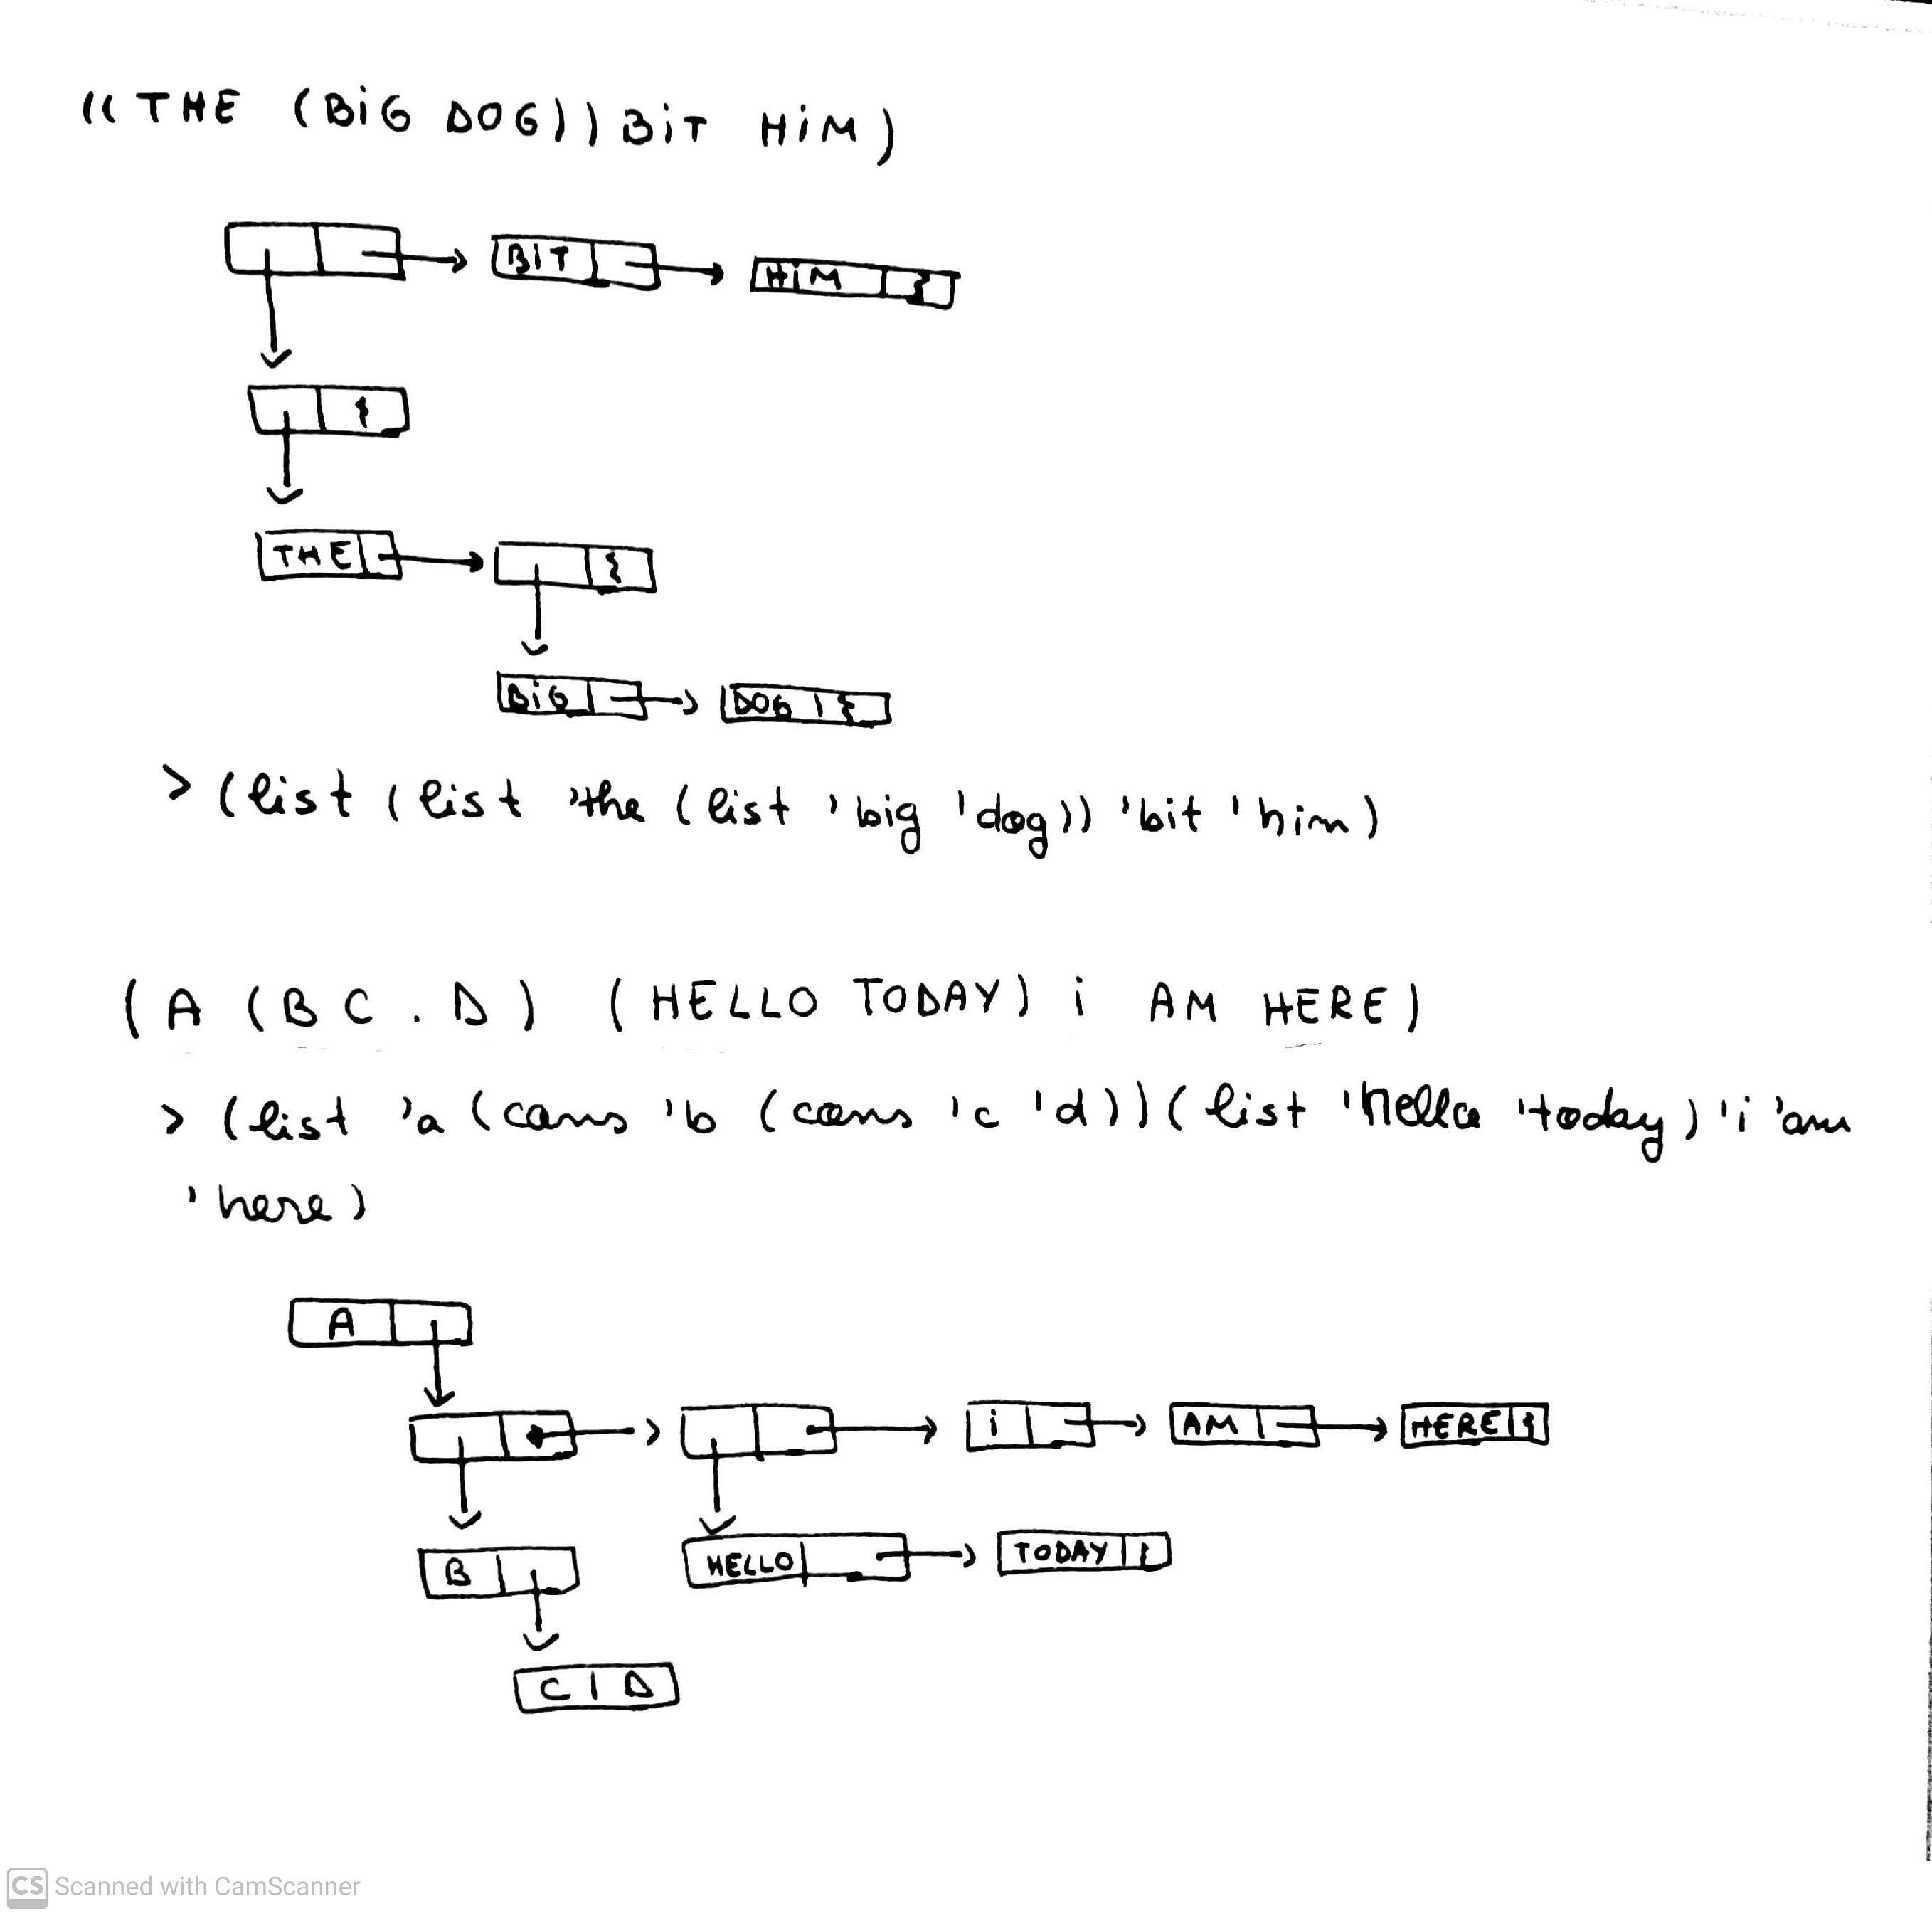 ((THE (BiG DOG)) BiT HiM)
BiT HiM
THE
BiG DOG
> (list (list 'the (list 'big 'dog)) 'bit 'him)
(A (B C . D) (HELLO TODAY) i AM HERE)
> (list 'a (cons 'b (cons 'c 'd)) (list 'hello 'today) 'i 'am
'here)
A
i AM HERE
B HELLO TODAY
C D
CS Scanned with CamScanner